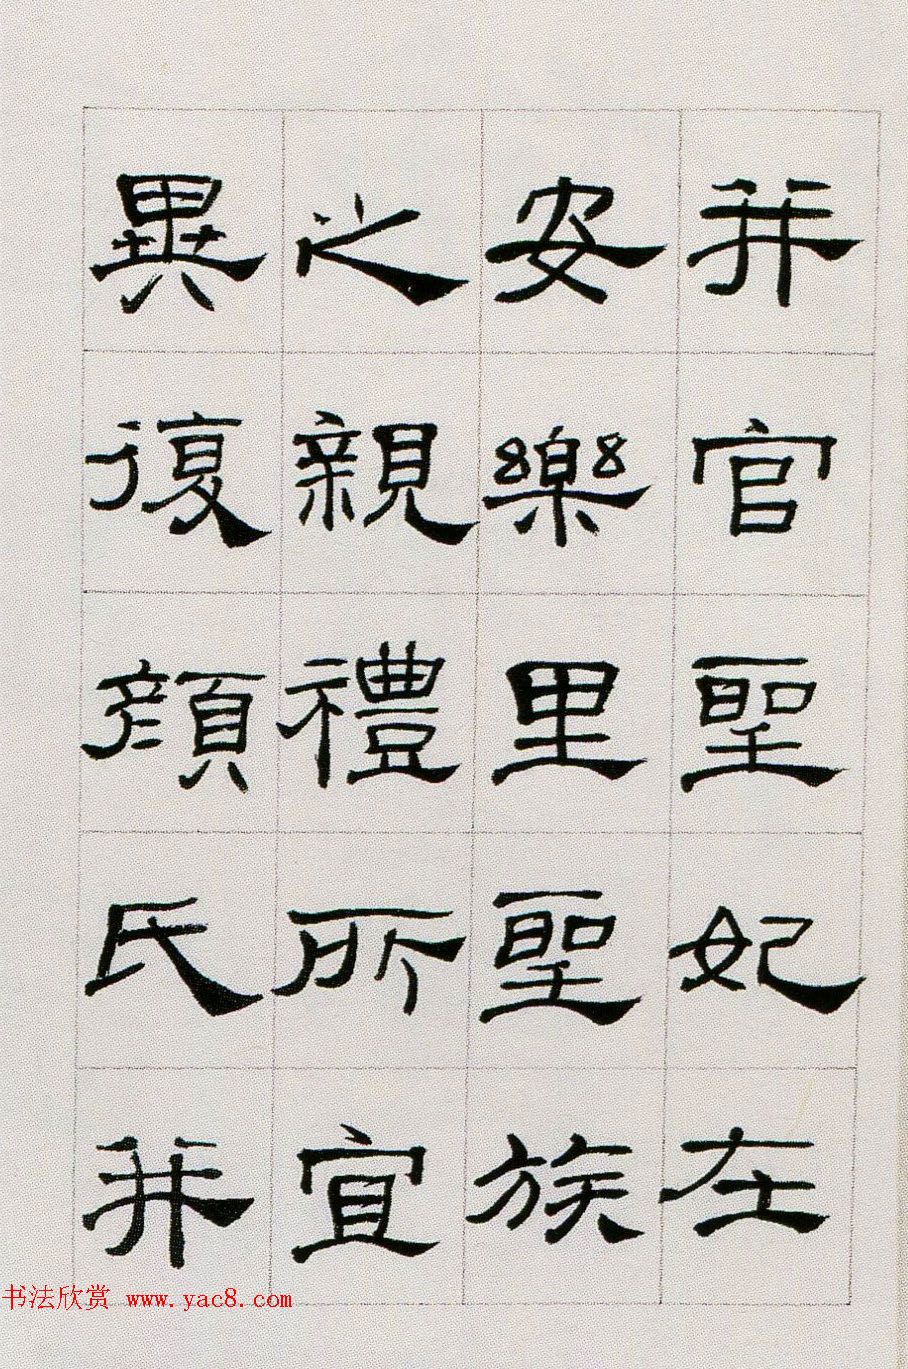 并官聖妃在
安樂里聖族
之親禮所宜
異復顏氏并
书法欣赏 www.yac8.com